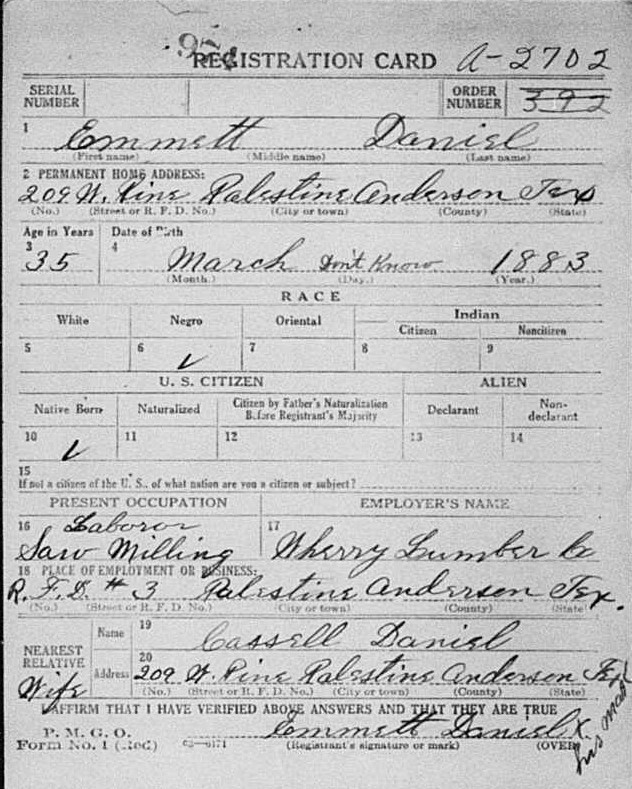 954
REGISTRATION CARD A-2702
SERIAL NUMBER ORDER NUMBER 392
1 Emmett Daniel
(First name) (Middle name) (Last name)
2 PERMANENT HOME ADDRESS:
209 W. Pine Palestine Anderson Tex
(No.) (Street or R. F. D. No.) (City or town) (County) (State)
Age in Years Date of Birth
3 4
35 March Don't Know 1883
(Month.) (Day.) (Year.)
RACE
White Negro Oriental Indian
Citizen Noncitizen
5 6 ✓ 7 8 9
U. S. CITIZEN ALIEN
Native Born Naturalized Citizen by Father's Naturalization Before Registrant's Majority Declarant Non-declarant
10 ✓ 11 12 13 14
15
If not a citizen of the U. S., of what nation are you a citizen or subject?
PRESENT OCCUPATION EMPLOYER'S NAME
16 Laboror 17
Saw Milling Wherry Lumber Co
18 PLACE OF EMPLOYMENT OR BUSINESS:
R. F. D. # 3 Palestine Anderson Tex.
(No.) (Street or R. F. D. No.) (City or town) (County) (State)
NEAREST RELATIVE Name 19 Cassell Daniel
Wife Address 20 209 W. Pine Palestine Anderson Tex
(No.) (Street or R. F. D. No.) (City or town) (County) (State)
I AFFIRM THAT I HAVE VERIFIED ABOVE ANSWERS AND THAT THEY ARE TRUE
P. M. G. O.
Form No. 1 (Red) 03—6171 Emmett Daniel X his mark
(Registrant's signature or mark) (OVER)